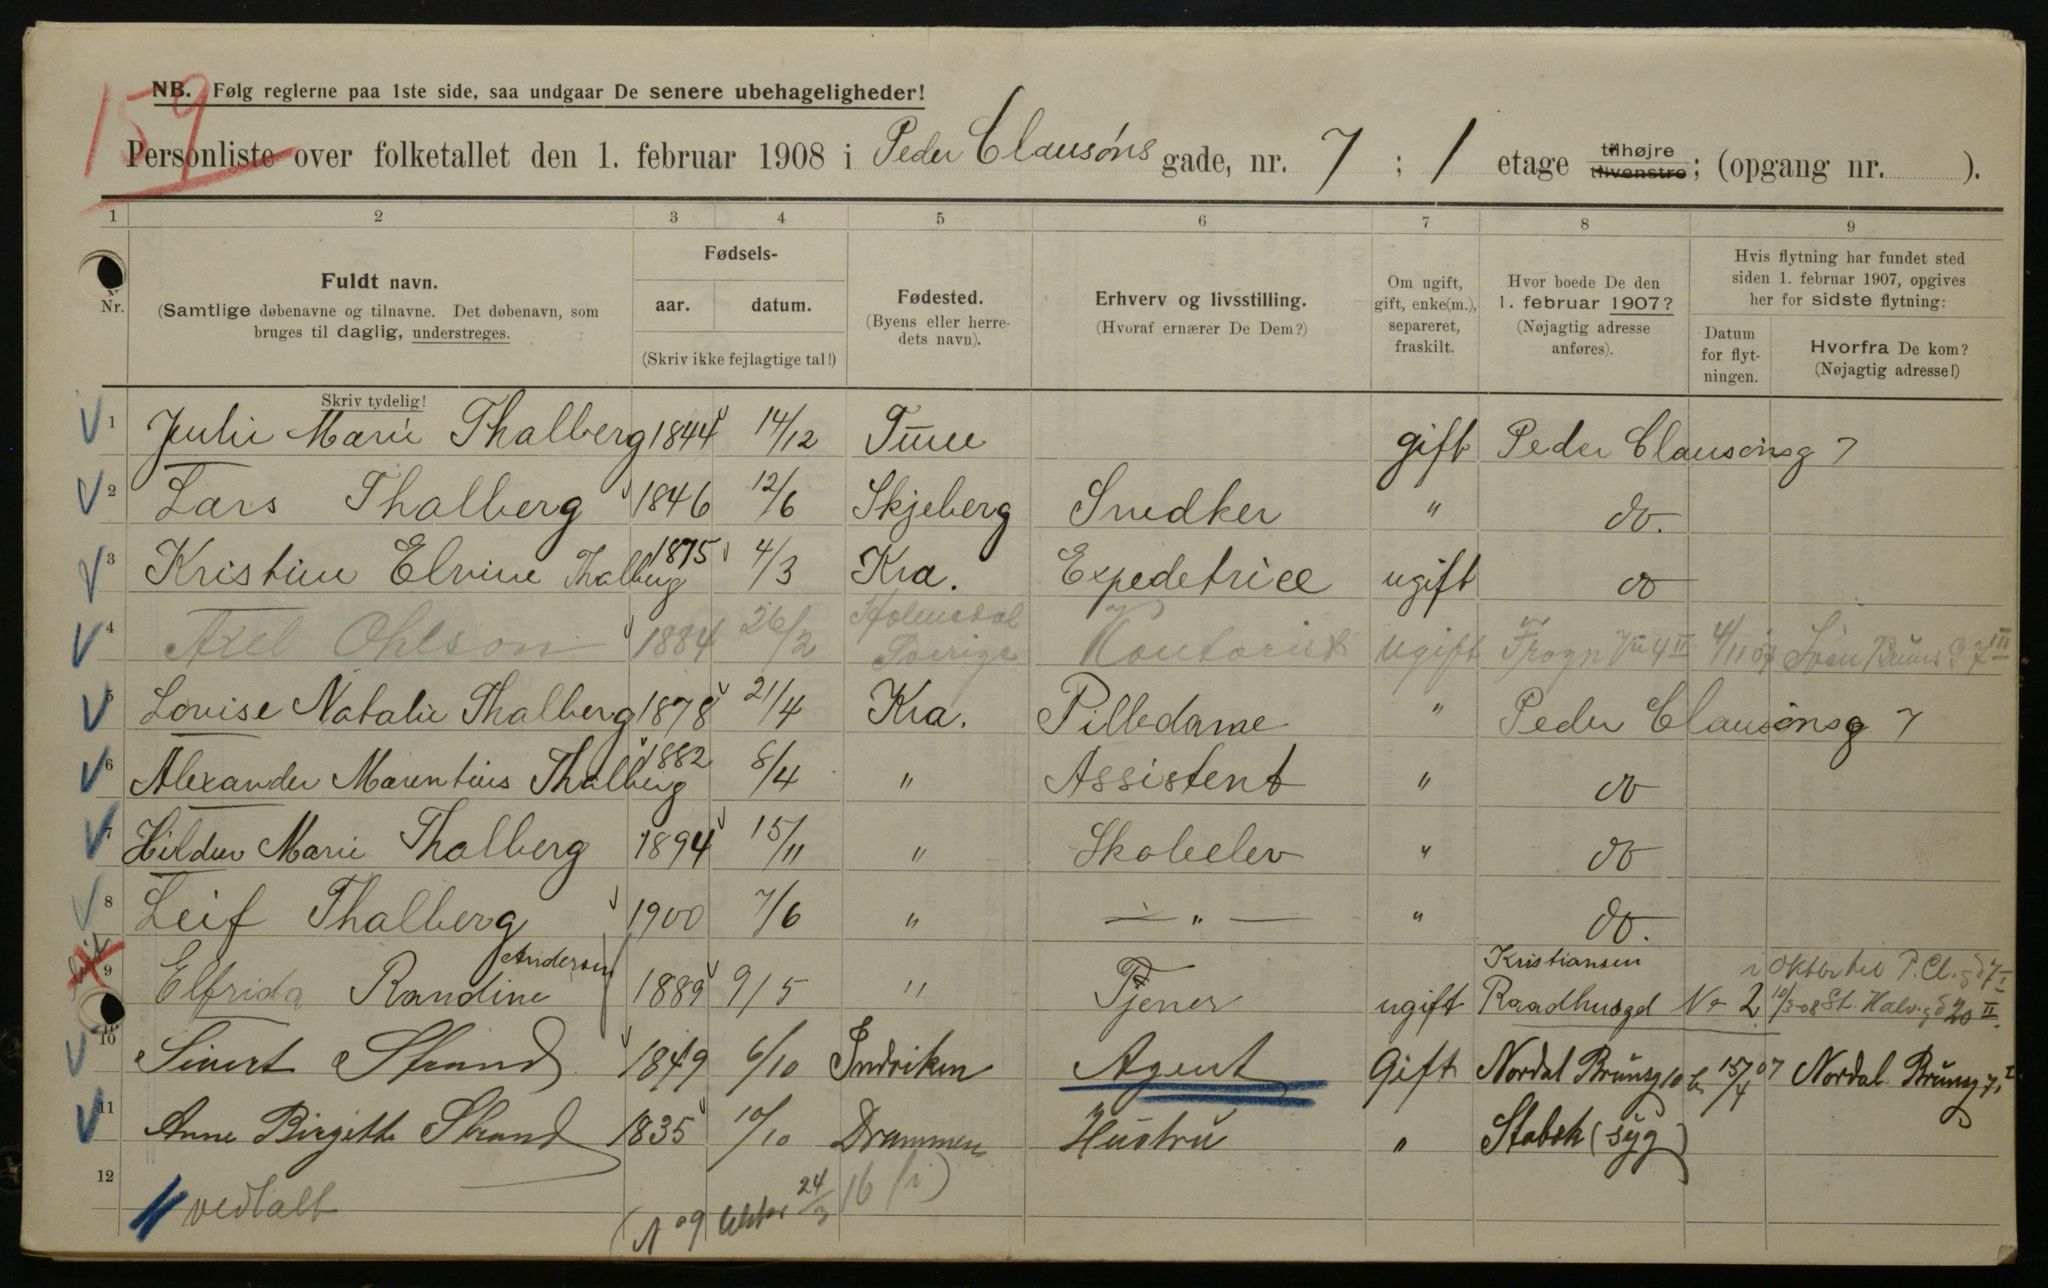 159
NB. Følg reglerne paa 1ste side, saa undgaar De senere ubehageligheder!
Personliste over folketallet den 1. februar 1908 i Peder Clausøns gade, nr. 7 ; 1 etage tilhøjre tilvenstre; (opgang nr. ).
1 2 3 4 5 6 7 8 9
Nr.
Fuldt navn.
(Samtlige døbenavne og tilnavne. Det døbenavn, som
bruges til daglig, understreges.
Fødsels-
aar. datum.
(Skriv ikke fejlagtige tal!)
Fødested.
(Byens eller herre-
dets navn).
Erhverv og livsstilling.
(Hvoraf ernærer De Dem?)
Om ugift,
gift, enke(m.),
separeret,
fraskilt.
Hvor boede De den
1. februar 1907?
(Nøjagtig adresse
anføres).
Hvis flytning har fundet sted
siden 1. februar 1907, opgives
her for sidste flytning:
Datum
for flyt-
ningen.
Hvorfra De kom?
(Nøjagtig adresse!)
Skriv tydelig!
1 Julie Marie Thalberg 1844 14/12 Tune gift Peder Clausønsg 7
2 Lars Thalberg 1846 12/6 Skjeberg Snedker " do.
3 Kristine Elvine Thalberg 1875 4/3 Kra. Expedetrice ugift do
4 Axel Ohlson 1884 26/2 Sverige Kontorist ugift Frogn 4 II 4/11 07 Sven Bruns g 7 III
5 Lovise Natalie Thalberg 1878 21/4 Kra. Pilledame " Peder Clausønsg 7
6 Alexander Marentius Thalberg 1882 8/4 " Assistent " do
7 Hildur Marie Thalberg 1894 15/11 " Skoleelev " do
8 Leif Thalberg 1900 7/6 " — " — " do.
9 Elfrida Randine Andersen 1889 9/5 " Tjener ugift Kristiansen Raadhusgd No 2 i Oktber til P. Cl. gd 7 I
10/3-08 St. Halv. gd 20 II.
10 Sivert Strand 1849 6/10 Indviken Agent Gift Nordal Brunsg 10 b 15/4 07 Nordal Brunsg 7, I
11 Anne Birgitte Strand 1835 10/10 Drammen Hustru " Stabek (syg)
12 vedtalt
09 24/3 16